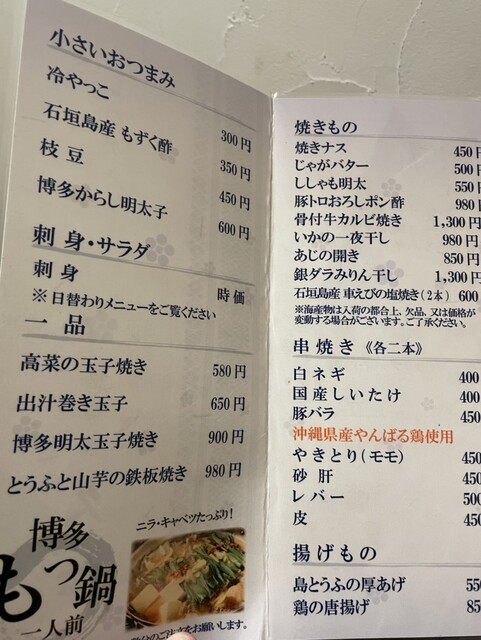 小さいおつまみ
冷やっこ 300円
石垣島産 もずく酢 350円
枝豆 450円
博多からし明太子 600円
刺身・サラダ
刺身 時価
※日替わりメニューをご覧ください
一品
高菜の玉子焼き 580円
出汁巻き玉子 650円
博多明太玉子焼き 900円
とうふと山芋の鉄板焼き 980円
博多
もつ鍋
一人前
ニラ・キャベツたっぷり!
のご注文をお願いします。
焼きもの
焼きナス 450円
じゃがバター 500円
ししゃも明太 550円
豚トロおろしポン酢 980円
骨付牛カルビ焼き 1,300円
いかの一夜干し 980円
あじの開き 850円
銀ダラみりん干し 1,300円
石垣島産 車えびの塩焼き(2本) 600
※海産物は入荷の都合上、欠品、又は価格が
変動する場合がございます。ご了承ください。
串焼き《各二本》
白ネギ 400
国産しいたけ 400
豚バラ 450
沖縄県産やんばる鶏使用
やきとり(モモ) 450
砂肝 450
レバー 500
皮 450
揚げもの
島とうふの厚あげ 550
鶏の唐揚げ 850